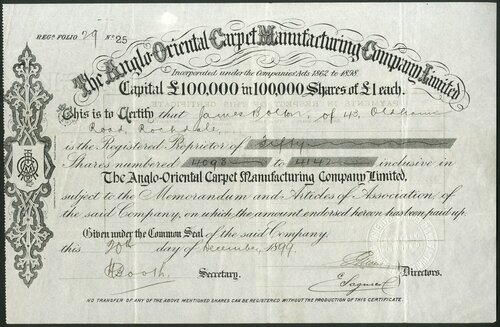 REGD. FOLIO 29 No. 25
The Anglo-Oriental Carpet Manufacturing Company, Limited
Incorporated under the Companies Acts 1862 to 1898.
Capital £100,000 in 100,000 Shares of £1 each.
This is to Certify that James Bolton, of 43, Oldham
Road Rochdale
is the Registered Proprietor of Fifty
Shares numbered 4093 to 4142 inclusive in
The Anglo-Oriental Carpet Manufacturing Company Limited,
subject to the Memorandum and Articles of Association of
the said Company, on which the amount endorsed hereon has been paid up.
Given under the Common Seal of the said Company.
this 20th day of December, 1899.
Booth. Secretary.
Directors.
NO TRANSFER OF ANY OF THE ABOVE MENTIONED SHARES CAN BE REGISTERED WITHOUT THE PRODUCTION OF THIS CERTIFICATE.